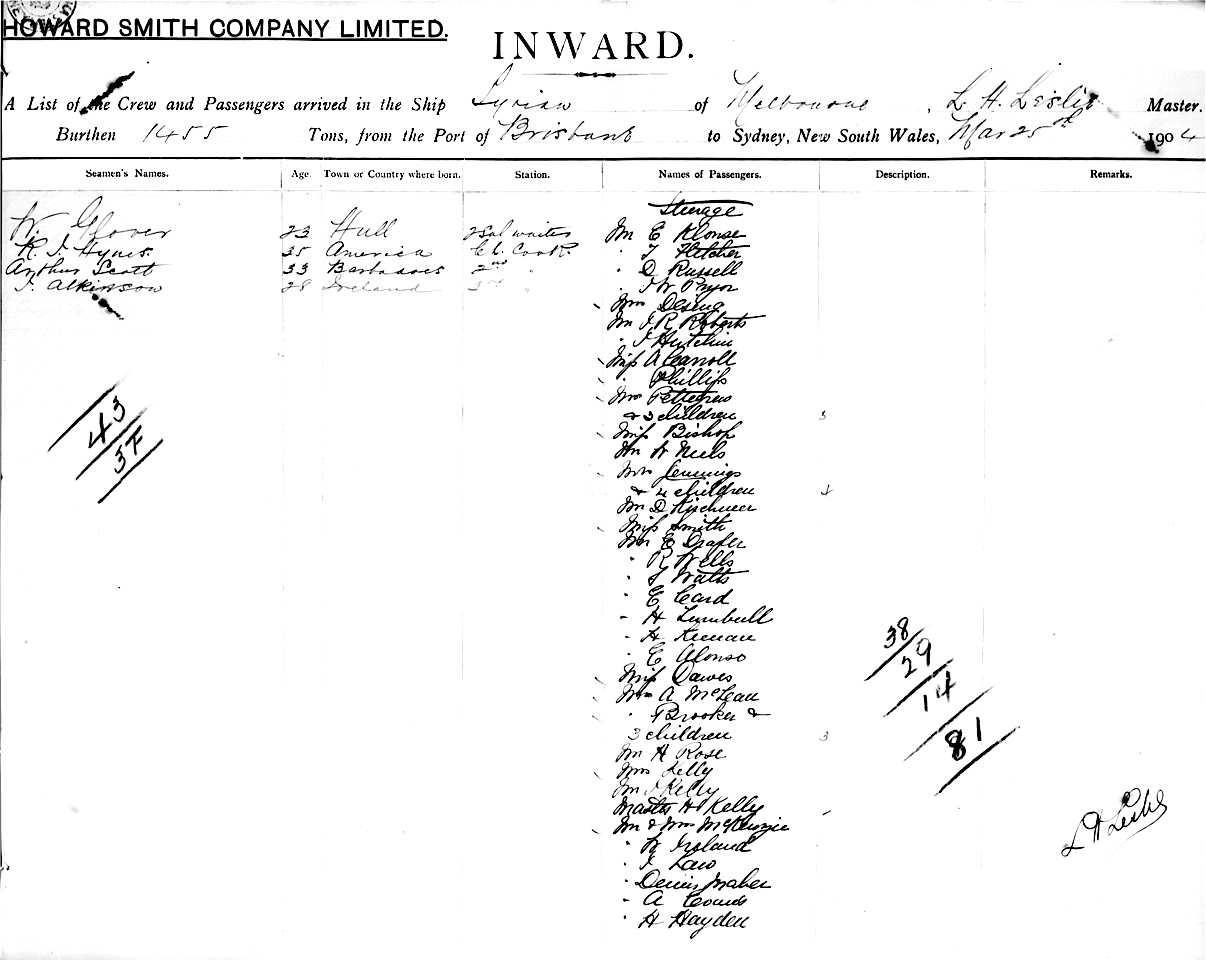 HOWARD SMITH COMPANY LIMITED.
INWARD.
A List of the Crew and Passengers arrived in the Ship Syrian of Melbourne, L. H. Leslie Master.
Burthen 1455 Tons, from the Port of Brisbane to Sydney, New South Wales, Mar 25th 1904
Seamen's Names. Age Town or Country where born. Station. Names of Passengers. Description. Remarks.
W. Glover 23 Hull 2 Sal waiter
R. J. Hynes 35 America Ch. Cook
Arthur Scott 33 Barbadoes 2nd "
J. Atkinson 28 Ireland 3rd "
43
37
Steerage
Mr E Klonse
" J Fletcher
" D Russell
" J W Pryor
Mrs
Mr J R Roberts
" J Hutchin
Miss A Carroll
" Phillips
Mrs Pettigrew
& 3 children 3
Miss Bishop
Mr W Neels
Mrs Jennings
& 4 children 4
Mr D
Miss Smith
Mr E
" R Wells
" J Watts
" E Card
" H Turnbull
" H Keenan
" E Alonso
Miss Dawes
Mrs A McLean
" Brooker &
3 children 3
Mr H Rose
Mrs Kelly
Mr J Kelly
Master H Kelly
Mr & Mrs McKenzie
" W Ireland
" J Law
" Denis Maher
" A
" H Hayden
38
29
14
81
L H Leslie